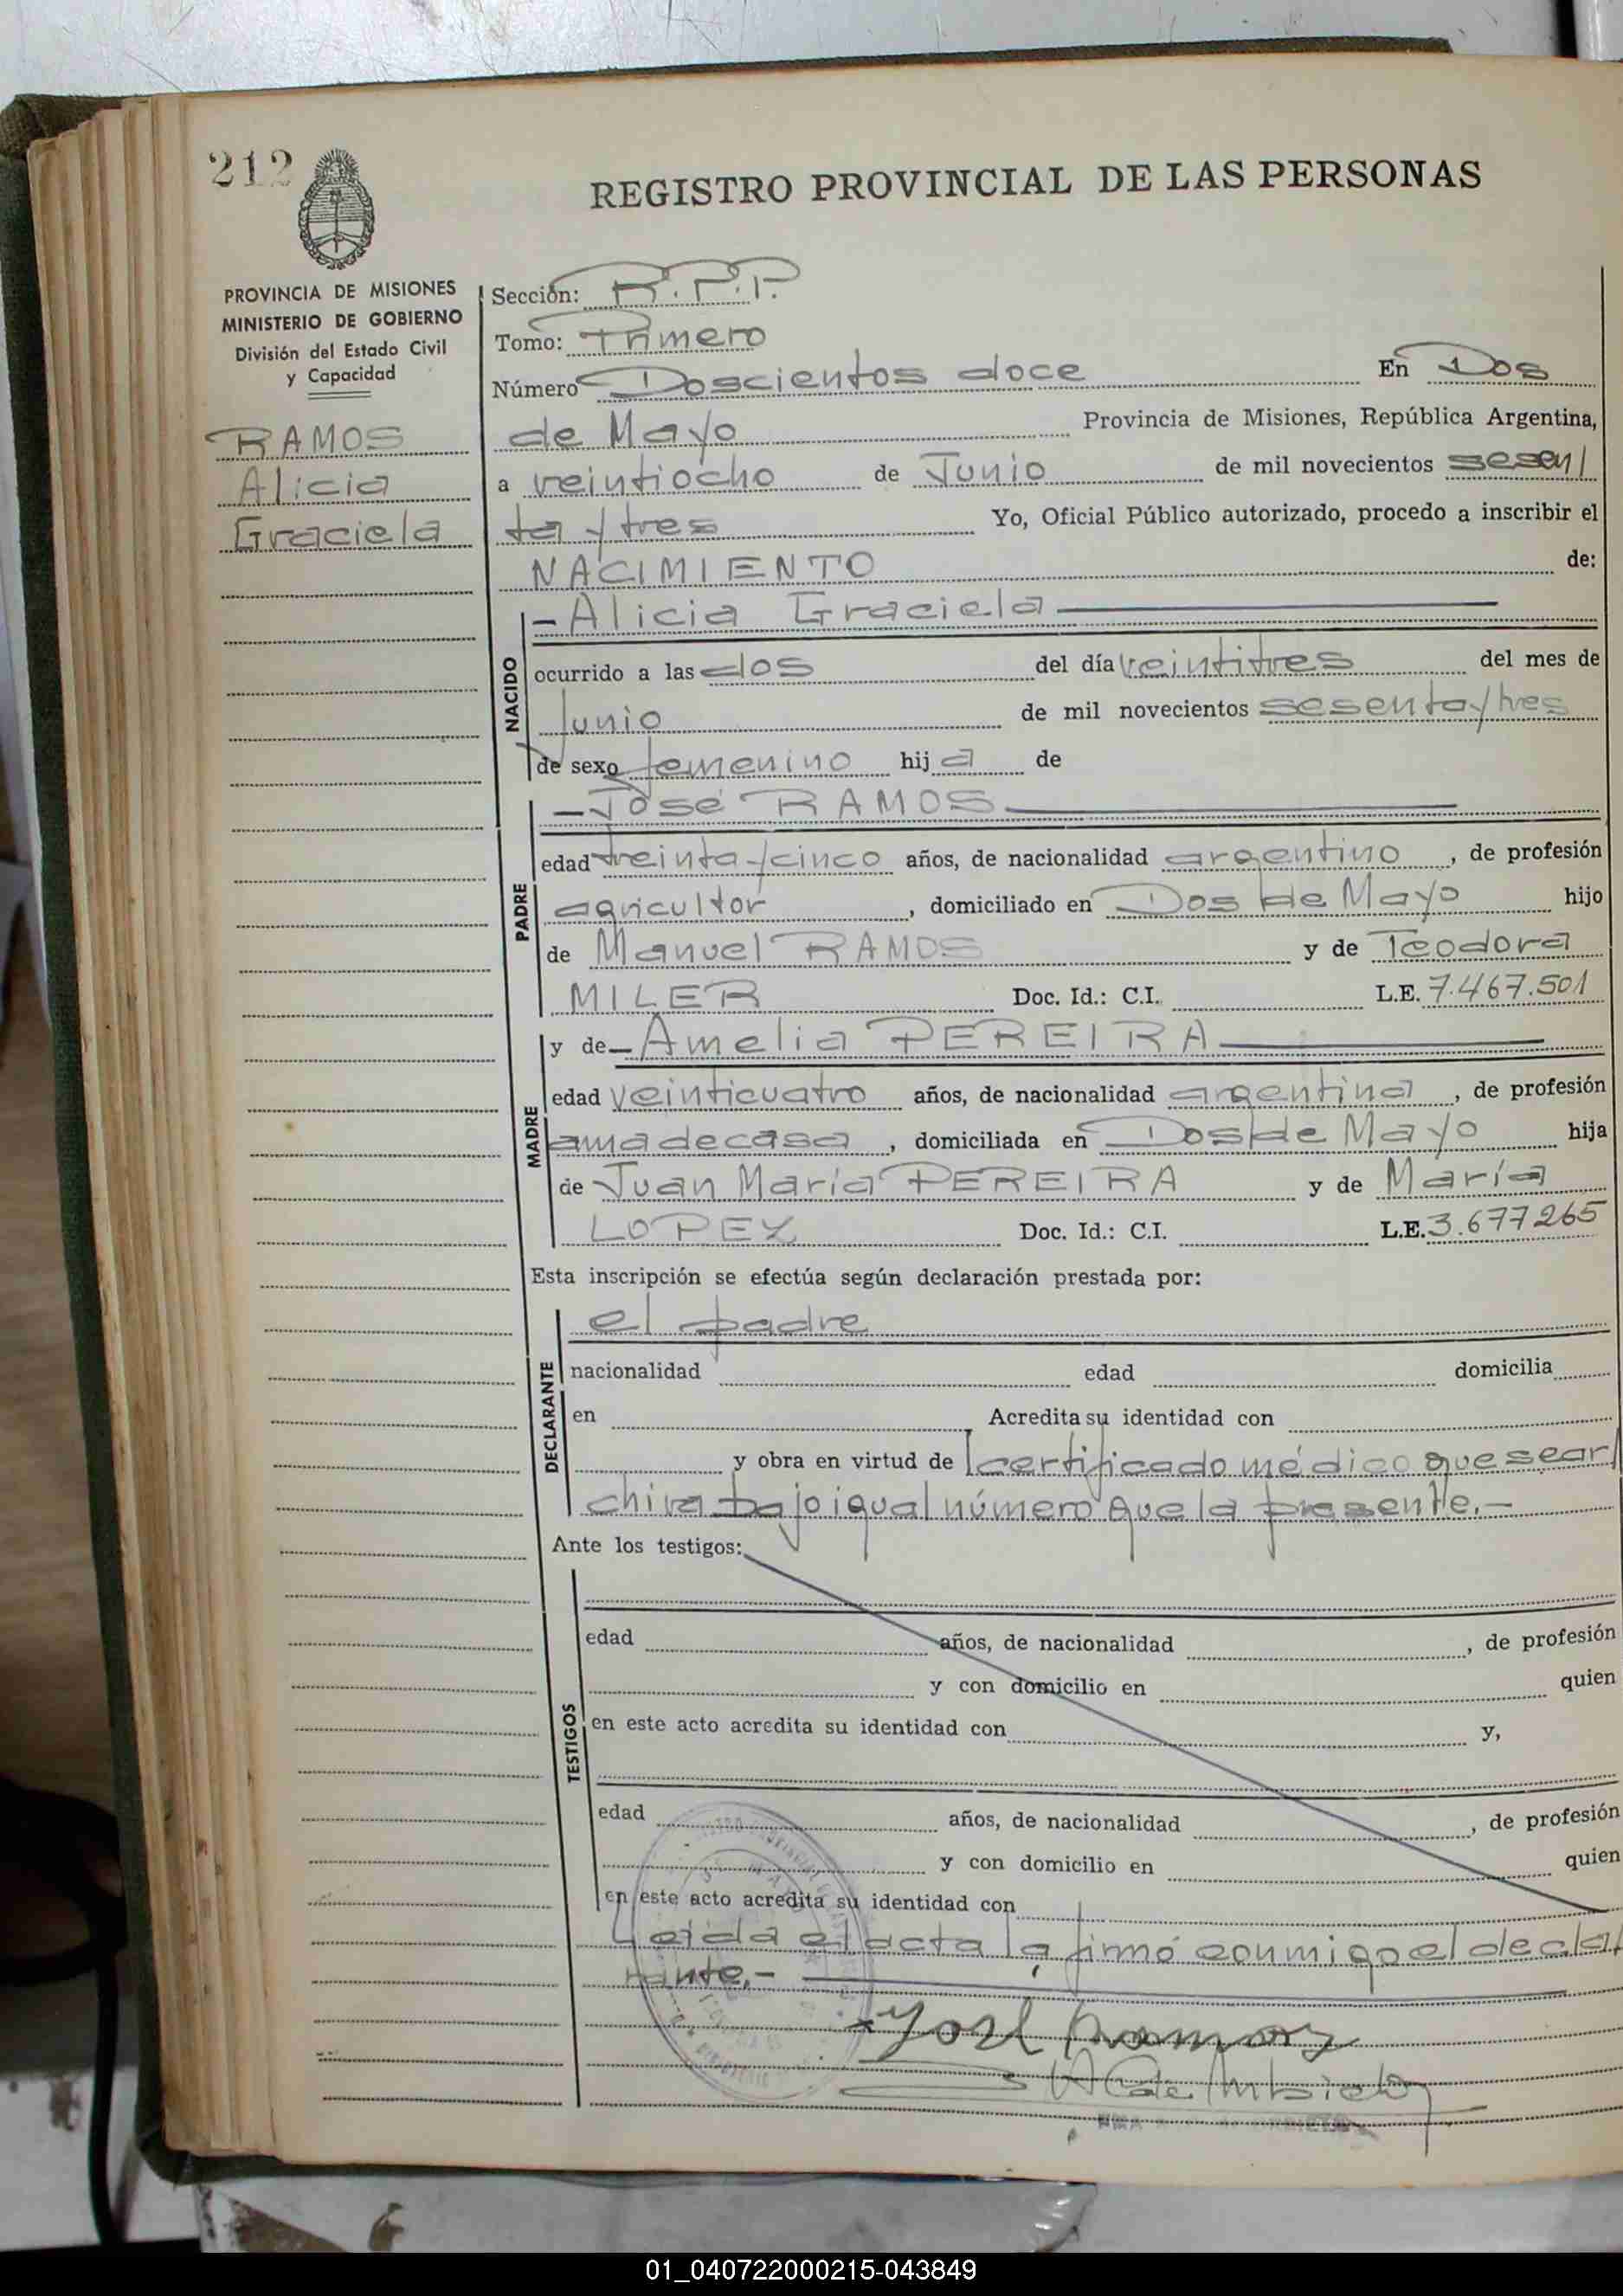 212
REGISTRO PROVINCIAL DE LAS PERSONAS
PROVINCIA DE MISIONES
MINISTERIO DE GOBIERNO
División del Estado Civil
y Capacidad
RAMOS
Alicia
Graciela
Sección: R.P.P.
Tomo: Primero
Número Doscientos doce En Dos
de Mayo Provincia de Misiones, República Argentina,
a veintiocho de Junio de mil novecientos sesen/
ta y tres Yo, Oficial Público autorizado, procedo a inscribir el
NACIMIENTO de:
NACIDO
-Alicia Graciela
ocurrido a las dos del día veintitres del mes de
Junio de mil novecientos sesenta y tres
de sexo femenino hija de
PADRE
-José RAMOS
edad treinta y cinco años, de nacionalidad argentino, de profesión
agricultor, domiciliado en Dos de Mayo hijo
de Manuel RAMOS y de Teodora
MILER Doc. Id.: C.I. L.E. 7.467.501
MADRE
y de -Amelia PEREIRA
edad veinticuatro años, de nacionalidad argentina, de profesión
ama de casa, domiciliada en Dos de Mayo hija
de Juan María PEREIRA y de María
LOPEZ Doc. Id.: C.I. L.E. 3.677265
Esta inscripción se efectúa según declaración prestada por:
DECLARANTE
el padre
nacionalidad edad domicilia
en Acredita su identidad con
y obra en virtud de certificado médico que se ar/
chiva bajo igual número que la presente.-
Ante los testigos:
TESTIGOS
edad años, de nacionalidad , de profesión
y con domicilio en quien
en este acto acredita su identidad con y,
edad años, de nacionalidad , de profesión
y con domicilio en quien
en este acto acredita su identidad con
Leída el acta la firmó conmigo el decla/
rante.-
José Ramos
01_040722000215-043849